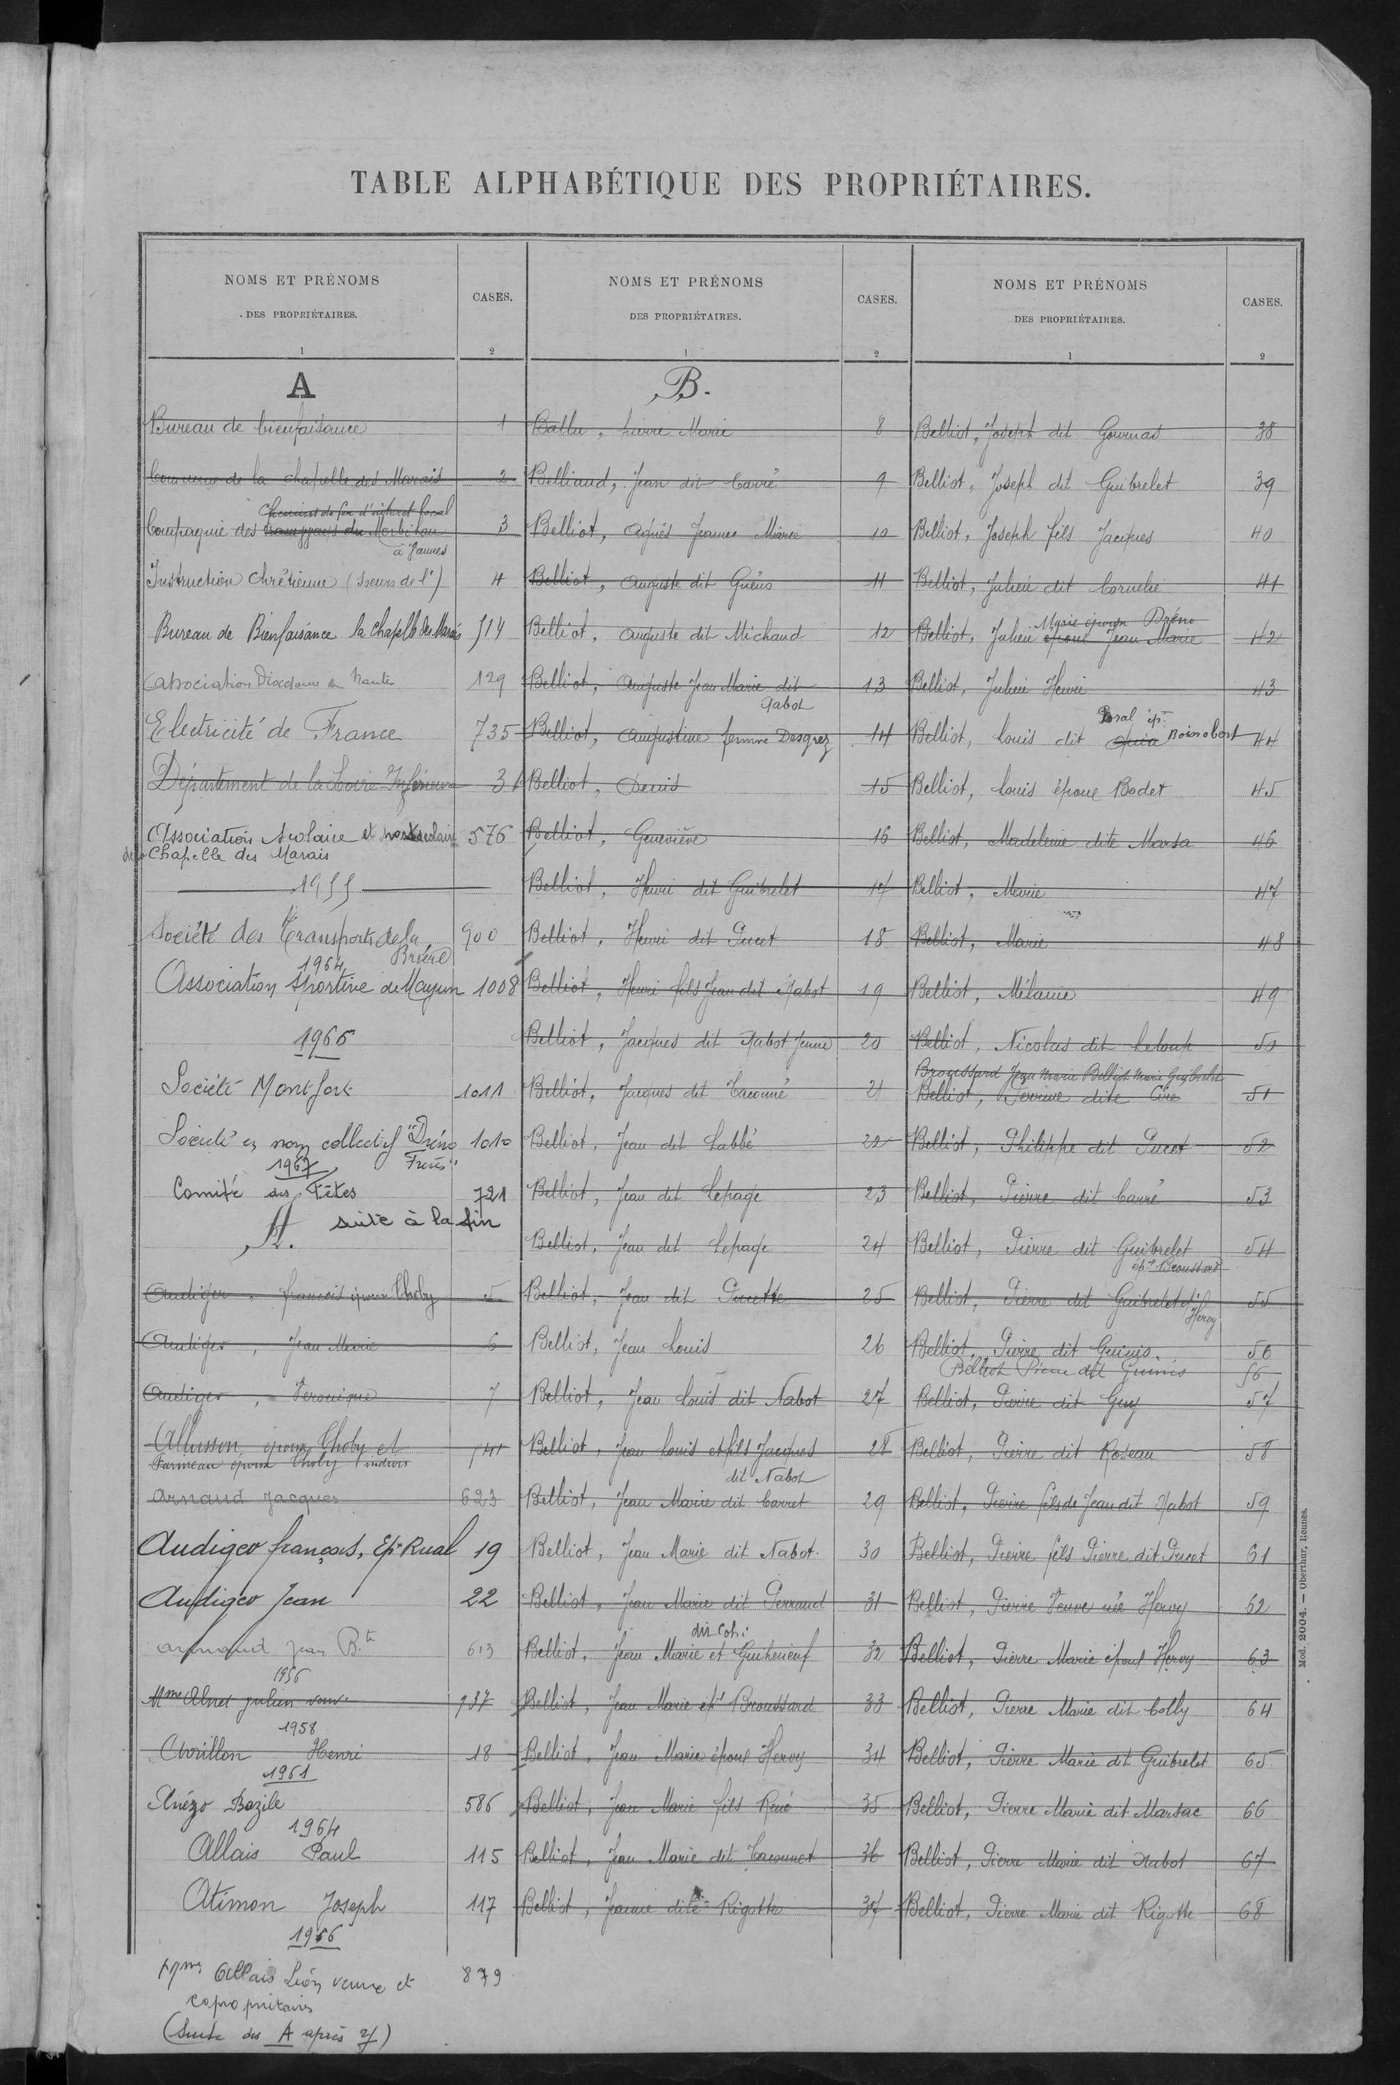 TABLE ALPHABÉTIQUE DES PROPRIÉTAIRES.
NOMS ET PRÉNOMS DES PROPRIÉTAIRES. CASES.
1 2
A
Bureau de bienfaisance 1
Commune de la chapelle des Marais 2
Chemins de fer d'intérêt local
Compagnie des du Morbihan 3
à Vannes
Instruction Chrétienne (soeurs de l') 4
Bureau de Bienfaisance la Chapelle des Marais 514
Association Diocésaine de Nantes 129
Electricité de France 735
Département de la Loire Inférieure 31
Association Scolaire et 576
de la Chapelle des Marais
1955
Société des Transports de la 900
Brière
1964
Association Sportive de Mayun 1008
1966
Société Montfort 1011
Société en nom collectif "Dréno 1010
Frères"
1967
Comité des Fêtes 721
A. suite à la fin
Audiger, François époux Choby 5
Audiger, Jean Marie 6
Audiger, Véronique 7
Allusson, époux Choby et 541
époux Choby
Arnaud Jacques 623
Audigeo françois, Ep. Rual 19
Audigeo Jean 22
Arnaud Jean Bte 613
1956
Mme julien veuve 937
1958
Henri 18
1961
Anézo Bazile 586
1964
Allais Paul 115
Atimon Joseph 117
1966
Mme Allais Léon veuve et 879
copropriétaires
(Suite des A après )
NOMS ET PRÉNOMS DES PROPRIÉTAIRES. CASES.
1 2
B.
Ballu, Pierre Marie 8
Belliaud, Jean dit Carré 9
Belliot, Agnès Jeanne Marie 10
Belliot, Auguste dit Guéus 11
Belliot, Auguste dit Michaud 12
Belliot, Auguste Jean Marie dit 13
Nabot
Belliot, Augustine femme Desgrez 14
Belliot, Denis 15
Belliot, Geneviève 16
Belliot, Henri dit Guibrelet 17
Belliot, Henri dit Pucet 18
Belliot, Henri fils Jean dit Nabot 19
Belliot, Jacques dit Nabot Jeune 20
Belliot, Jacques dit Taconné 21
Belliot, Jean dit Labbé 22
Belliot, Jean dit Lepage 23
Belliot, Jean dit Lepage 24
Belliot, Jean dit Pucette 25
Belliot, Jean Louis 26
Belliot, Jean Louis dit Nabot 27
Belliot, Jean Louis et fils Jacques 28
dit Nabot
Belliot, Jean Marie dit Carret 29
Belliot, Jean Marie dit Nabot 30
Belliot, Jean Marie dit Perraud 31
Belliot, Jean Marie et Guiheneuf 32
Belliot, Jean Marie ép. Broussard 33
Belliot, Jean Marie époux Hervy 34
Belliot, Jean Marie fils René 35
Belliot, Jean Marie dit Taconnet 36
Belliot, Jeanne dite Rigotte 37
NOMS ET PRÉNOMS DES PROPRIÉTAIRES. CASES.
1 2
Belliot, Joseph dit Gournas 38
Belliot, Joseph dit Guibrelet 39
Belliot, Joseph fils Jacques 40
Belliot, Julien dit Corneha 41
Marie époux Dréno
Belliot, Julien époux Jean Marie 42
Belliot, Julien Henri 43
Belliot, Louis dit Boisrobert 44
Belliot, Louis époux Bodet 45
Belliot, Madeleine dite Marsa 46
Belliot, Marie 47
Belliot, Marie 48
Belliot, Mélanie 49
Belliot, Nicolas dit Leloup 50
Broussard Jean Marie Belliot Marie Guibrelet
Belliot, Perrine dite Cire 51
Belliot, Philippe dit Pucet 52
Belliot, Pierre dit Carré 53
Belliot, Pierre dit Guibrelet 54
ép. Broussard
Belliot, Pierre dit Guibrelet ép. 55
Hervy
Belliot, Pierre dit Guinis 56
Belliot Pierre dit Guinis 56
Belliot, Pierre dit Guy 57
Belliot, Pierre dit Roseau 58
Belliot, Pierre fils de Jean dit Nabot 59
Belliot, Pierre fils Pierre dit Pucet 61
Belliot, Pierre Veuve née Hervy 62
Belliot, Pierre Marie époux Hervy 63
Belliot, Pierre Marie dit Colly 64
Belliot, Pierre Marie dit Guibrelet 65
Belliot, Pierre Marie dit Marsac 66
Belliot, Pierre Marie dit Nabot 67
Belliot, Pierre Marie dit Rigotte 68
Mod. 2004. — Oberthur, Rennes.